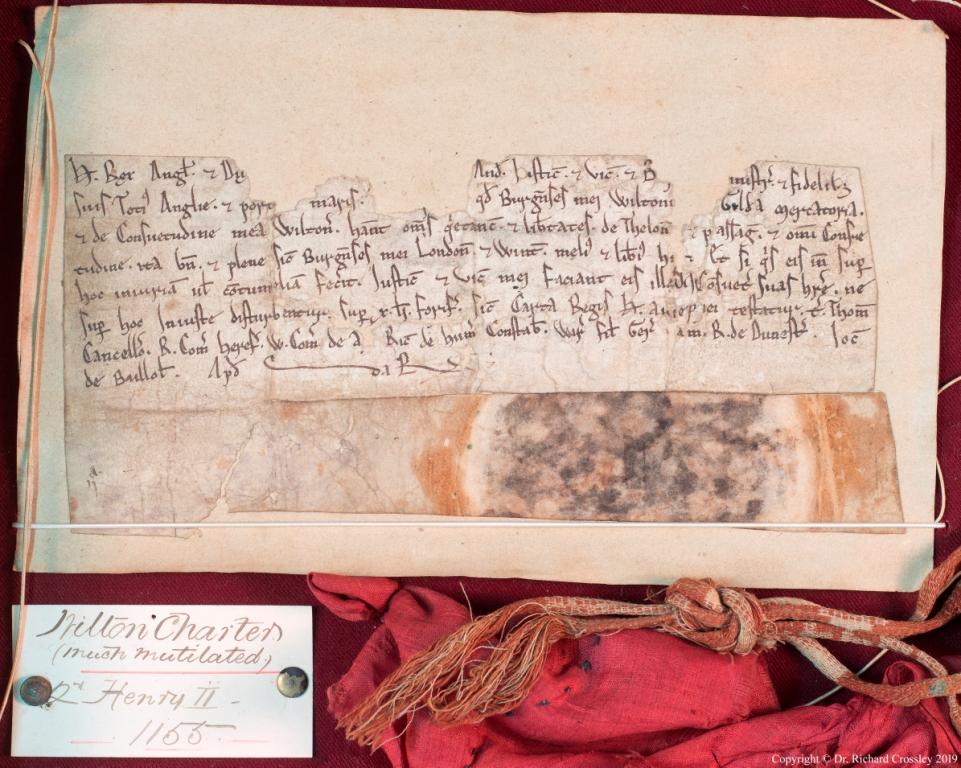 H. Rex Angł. & Du And. Justic̄. & Vic̄. & minstr̄. & fidelib3
suis Toti' Anglie. & port maris. qđ Burgn̄ses mei Wilton Gilda mercatoria.
& de Consuetudine mea Wilton̄. hānt om̄s q̇etanc̄ & lib̄tates. de Thelon̄ & passaḡ. & omī Consue
tudine. ita bn̄. & plene sic̄ Burgn̄ses mei London̄. & Wint̄. meli' & lib̄i' h & si q̇s eis in̄ sup
hoc iniuriā uł c̄otumeliā fecit̄. Justic̄ & Vic̄ mei Faciant eis Consuet̄ suas hr̄e. ne
sup hoc Iniuste disturbentur. sup. x. łi. Forisf̄. sic̄ Carta Regis H. aui mei testatur. T. Thom̄
Cancell̄o. R. Com̄ Heref̄. W. Com̄ de a Ric̄ de hum̄ Constab̄. War̄ fił Ger̄ am. R. de Dunest̄. Joc̄
de Baillol̄. Apđ
Wilton Charter
(much mutilated)
Henry II
1155
Copyright © Dr. Richard Crossley 2019